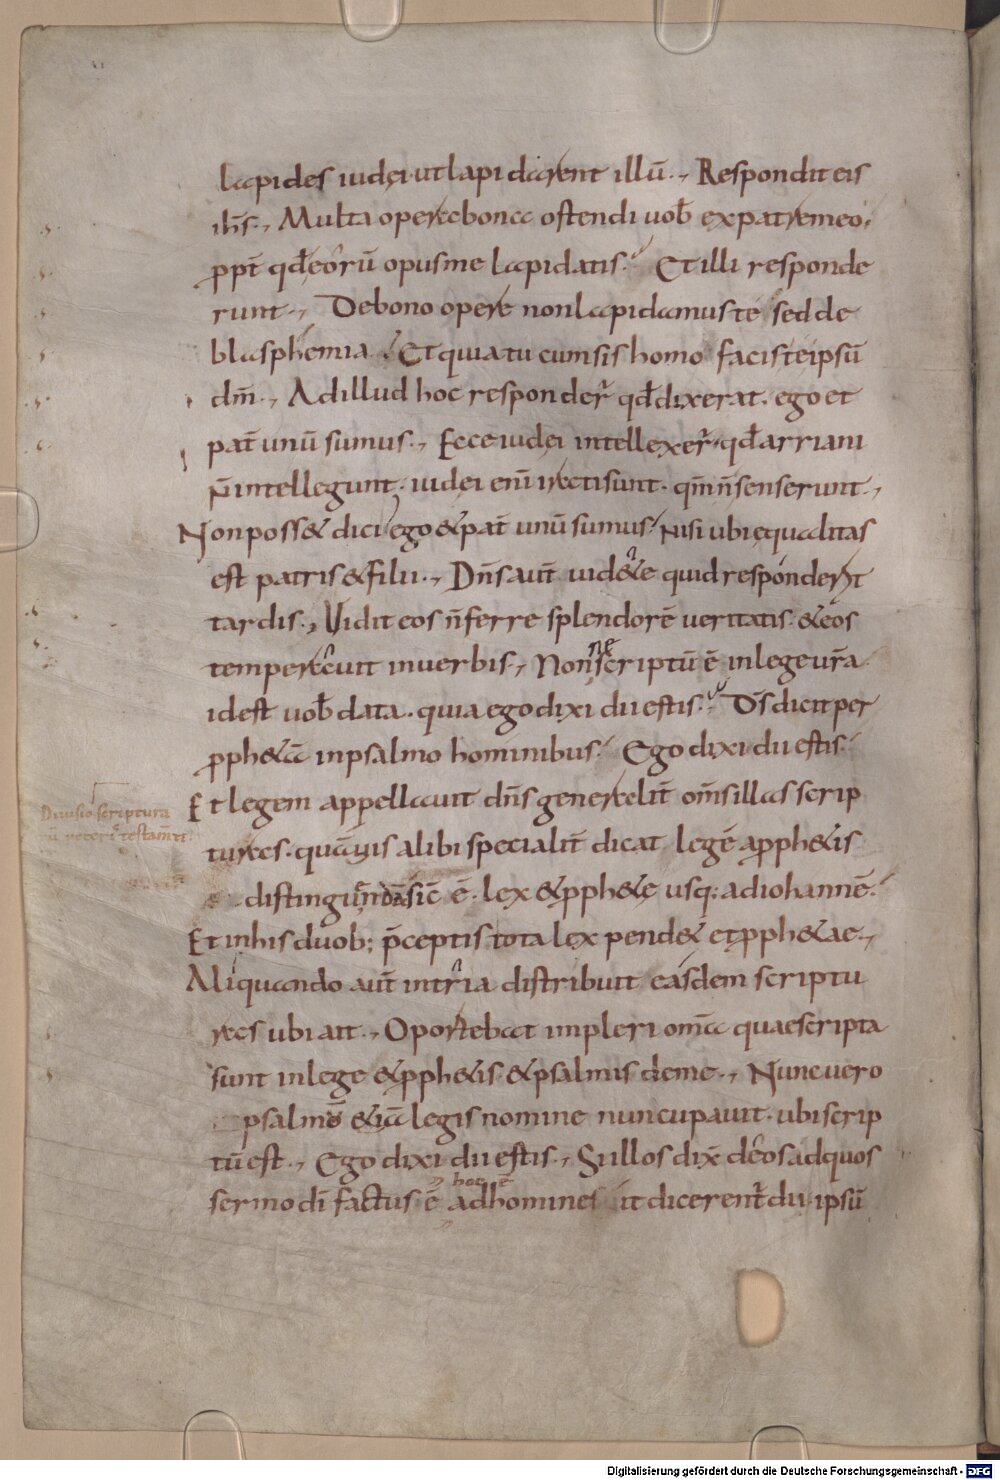 lapides iudei ut lapidarent illū. Respondit eis
ih̄s. Multa opera bona ostendi uob̄ ex patre meo.
ppt̄ qd̄ eorū opus me lapidatis. Et illi responde
runt. De bono opere non lapidamus te sed de
blasphemia. Et quia tu cum sis homo facis te ipsū
dm̄. Ad illud hoc responder̄ qd̄ dixerat. ego et
pat̄ unū sumus. Ecce iudei intellexer̄. qd̄ arriani
n̄ intellegunt. iudei enī irati sunt. qm̄ n̄ senserunt.
Non poss& dici ego & pat̄ unū sumus. Nisi ubi ęqualitas
est patris & filii. Dn̄s aut̄ uid&e quid responderit
tardis. Uidit eos n̄ ferre splendorē ueritatis. & eos
temperauit in uerbis. Nonne scriptū ē in lege ur̄a
id est uob̄ data. quia ego dixi dii estis. Ds̄ dicit per
pph&ā in psalmo hominibus. Ego dixi dii estis.
Et legem appellauit dn̄s generalit̄ om̄s illas scrip
turas. quāuis alibi specialit̄ dicat legē a pph&is
distinguendā sic ē. lex & pph&e usq: ad iohannē.
Et in his duob; p̄ceptis tota lex pend& et pph&ae.
Aliquando aut̄ in tria distribuit easdem scriptu
ras ubi ait. Oportebat impleri om̄a quae scripta
sunt in lege & pph&is & psalmis de me. Nunc uero
psalmō &iā legis nomine nuncupauit. ubi scrip
tū est. Ego dixi dii estis. Si illos dix̄ deos ad quos
hoc ē
sermo dī factus ē ad homines ut dicerent̄ dii. ipsū
Diuisio scriptura
rū ueteris testam̄ti
Digitalisierung gefördert durch die Deutsche Forschungsgemeinschaft - DFG